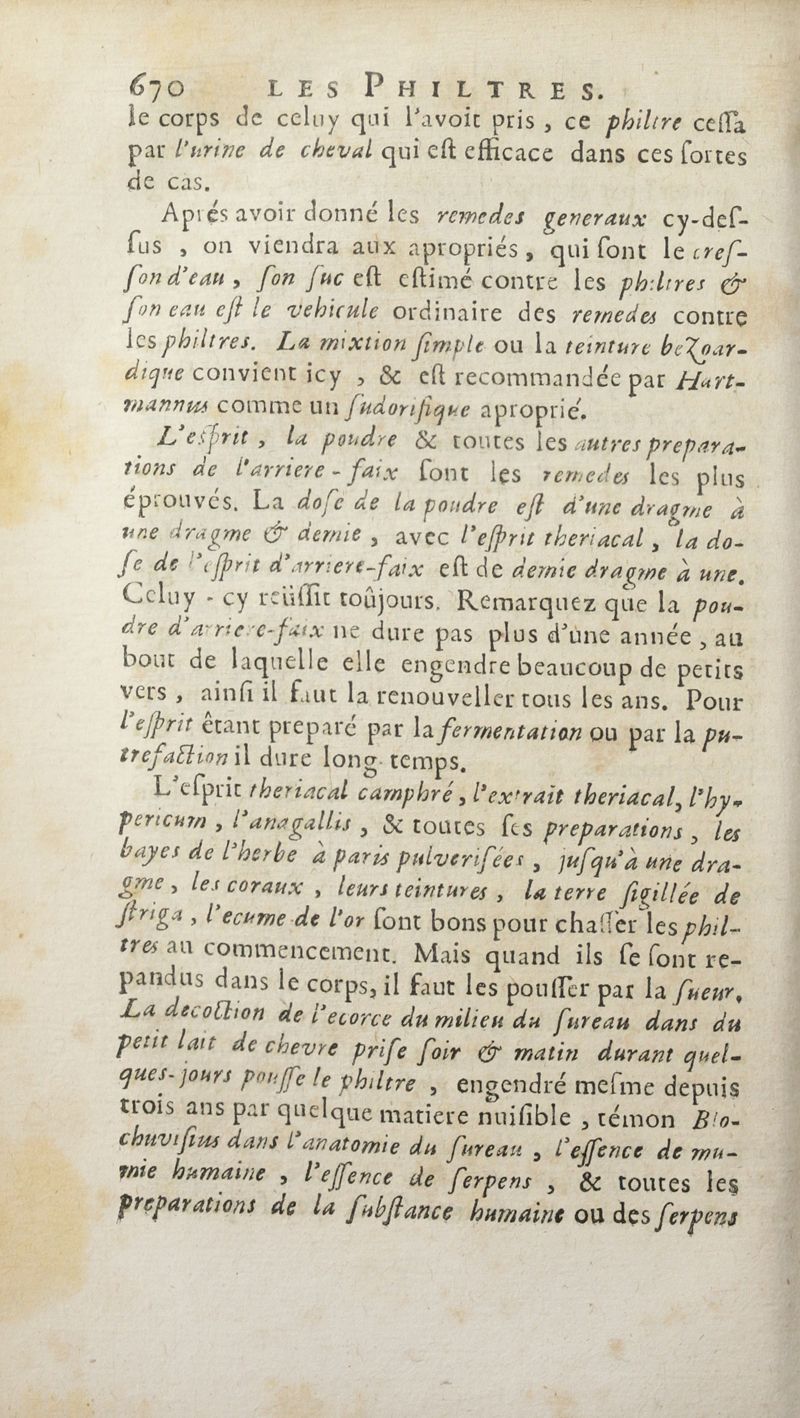 670 LES PHILTRES.
le corps de celuy qui l'avoit pris , ce philtre ceſſa
par l'urine de cheval qui eſt efficace dans ces ſortes
de cas.
Aprés avoir donné les remedes generaux cy-deſ-
ſus , on viendra aux apropriés, qui ſont le creſ-
ſon d'eau , ſon ſuc eſt eſtimé contre les philtres &
ſon eau eſt le vehicule ordinaire des remedes contre
les philtres. La mixtion ſimple ou la teinture beZoar-
dique convient icy , & eſt recommandée par Hart-
mannus comme un ſudorifique aproprié.
L'eſprit , la poudre & toutes les autres prepara-
tions de l'arriere-faix ſont les remedes les plus
éprouvés. La doſe de la poudre eſt d'une dragme à
une dragme & demie , avec l'eſprit theriacal , la do-
ſe de l'eſprit d'arriere-faix eſt de demie dragme à une.
Celuy-cy reüſſit toûjours. Remarquez que la pou-
dre d'arriere-faix ne dure pas plus d'une année , au
bout de laquelle elle engendre beaucoup de petits
vers , ainſi il faut la renouveller tous les ans. Pour
l'eſprit êtant preparé par la fermentation ou par la pu-
trefaction il dure long-temps.
L'eſprit theriacal camphré, l'extrait theriacal, l'hy-
pericum , l'anagallis , & toutes ſes preparations , les
bayes de l'herbe à paris pulveriſées , juſqu'à une dra-
gme , les coraux , leurs teintures , la terre ſigillée de
ſtriga , l'ecume de l'or ſont bons pour chaſſer les phil-
tres au commencement. Mais quand ils ſe ſont re-
pandus dans le corps, il faut les pouſſer par la ſueur.
La decoction de l'ecorce du milieu du ſureau dans du
petit lait de chevre priſe ſoir & matin durant quel-
ques-jours pouſſe le philtre , engendré meſme depuis
trois ans par quelque matiere nuiſible , témon Blo-
chuviſius dans l'anatomie du ſureau , l'eſſence de mu-
mie humaine , l'eſſence de ſerpens , & toutes les
preparations de la ſubſtance humaine ou des ſerpens